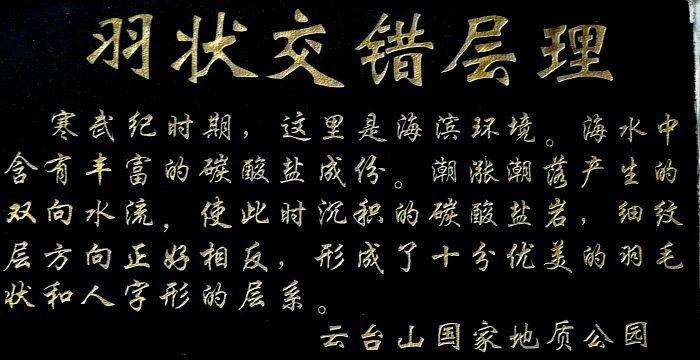 羽状交错层理
寒武纪时期，这里是海滨环境。海水中
含有丰富的碳酸盐成份。潮涨潮落产生的
双向水流，使此时沉积的碳酸盐岩，细纹
层方向正好相反，形成了十分优美的羽毛
状和人字形的层系。
云台山国家地质公园